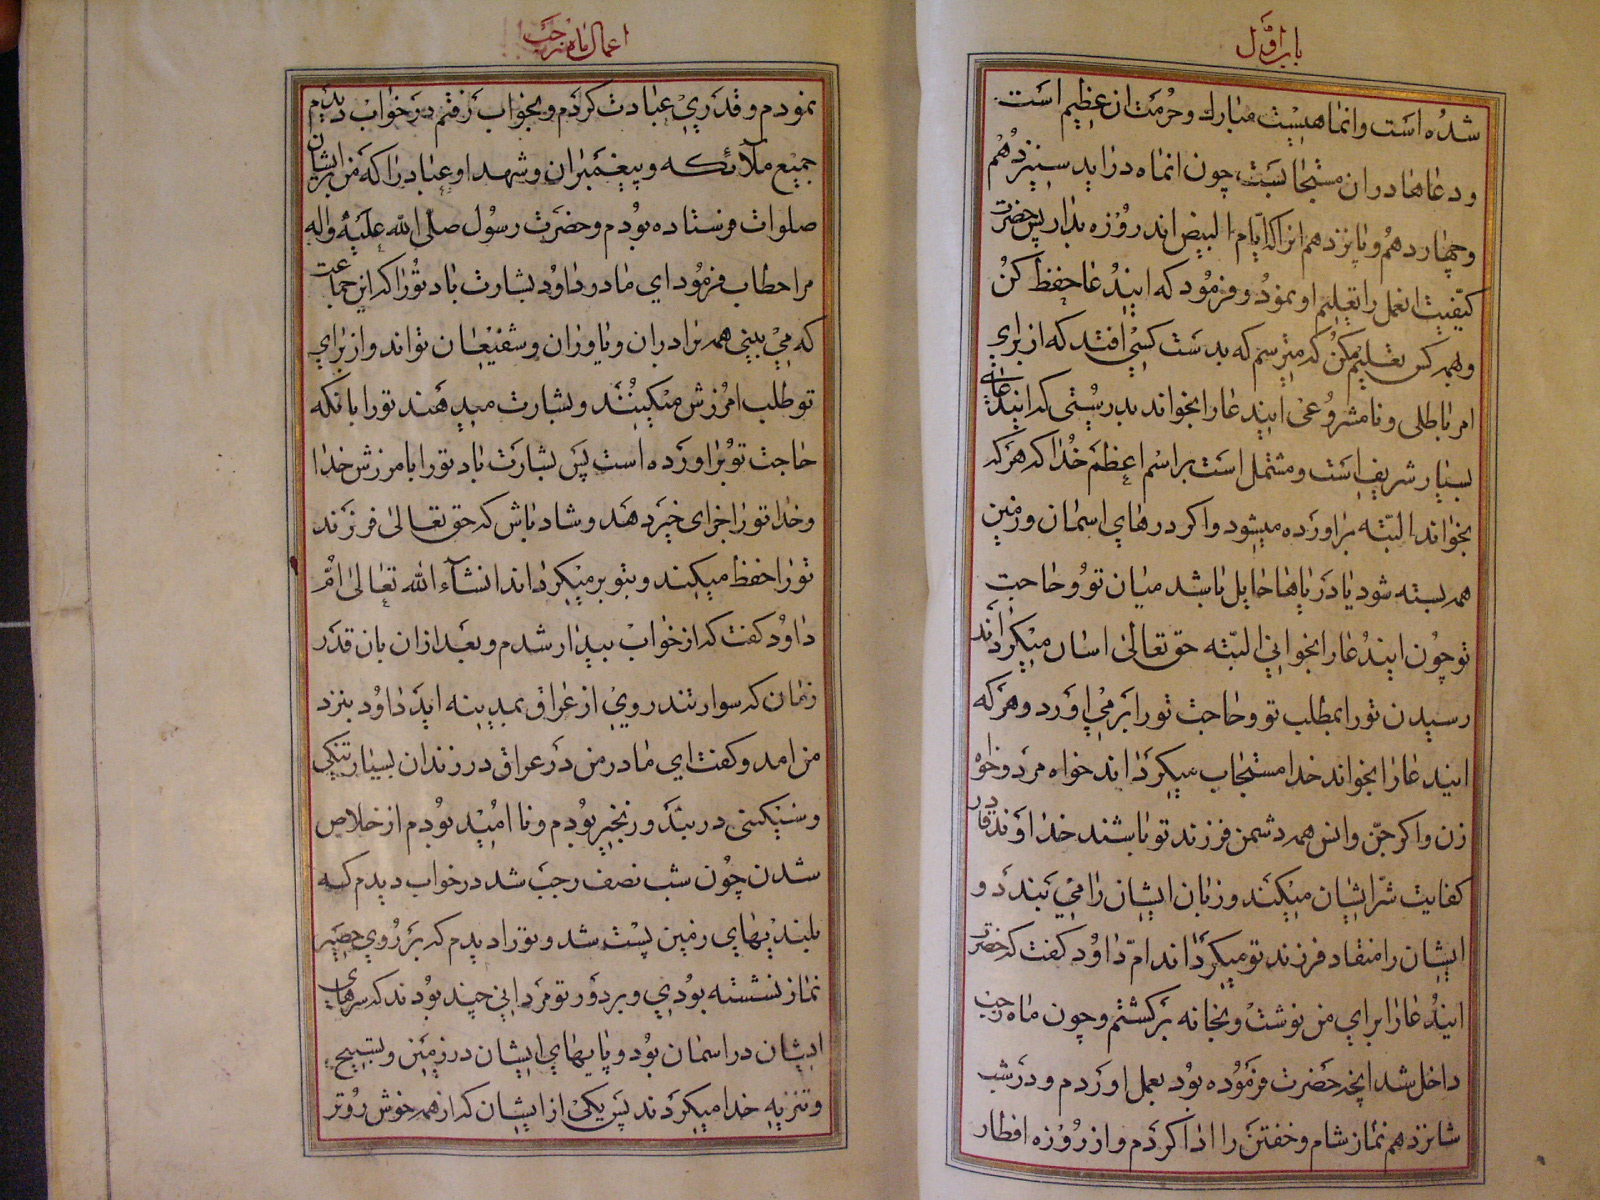 باب اول
شده است وانماهیست مبارك وحرمت ان عظیم است
ودعاها دران مستجابست چون انماه دراید سیزدهم
وچهاردهم وپانزدهم انرا که ایام البیض اند روزه بدار پس حضرت
کیفیت انعمل را تعلیم او نمود وفرمود که ایندعا حفظ کن
وبهمه کس تعلیم مکن که میترسم که بدست کسی افتد که از برای
امر باطلی ونامشروعی ایندعا را بخواند بدرستی که ایندعای
بسیار شریف است ومشتمل است بر اسم اعظم خدا که هر که
بخواند البته براورده میشود واکر درهای اسمان وزمین
همه بسته شود یا دریاها حایل باشد میان تو وحاجت
تو چون ایندعا را بخوانی البته حق تعالی اسان میکرداند
رسیدن تو را بمطلب تو وحاجت تو را بر می اورد وهر که
ایندعا را بخواند خدا مستجاب میکرداند خواه مرد وخواه
زن واکر جن وانس همه دشمن فرزند تو باشند خداوند قادر
کفایت شر ایشان میکند وزبان ایشان را می بندد و
ایشان را منقاد فرزند تو میکرداند ام داود کفت که حضرت
ایندعا را برای من نوشت وبخانه برکشتم وچون ماه رجب
داخل شد انچه حضرت فرموده بود بعمل اوردم ودر شب
شانزدهم نماز شام وخفتن را ادا کردم واز روزه افطار
اعمال ماه رجب
نمودم وقدری عبادت کردم وبخواب رفتم در خواب دیدم
جمیع ملآئکه وپیغمبران وشهدا وعباد را که من بر ایشان
صلوات فرستاده بودم وحضرت رسول صلی الله علیه واله
مرا حطاب فرمود ای مادر داود بشارت باد تو را که این جماعت
که می بینی همه برادران ویاوران وشفیعان تواند واز برای
تو طلب امرزش میکینند وبشارت میدهند تو را بانکه
حاجت تو براورده است پس بشارت باد تو را بامرزش خدا
وخدا تو را جزای خیر دهد وشاد باش که حق تعالی فرزند
تو را حفظ میکند وبتو بر میکرداند انشآء الله تعالی ام
داود کفت که از خواب بیدار شدم وبعد ازان بان قدر
زمان که سوار تند روی از عراق بمدینه اید داود بنزد
من امد وکفت ای مادر من در عراق در زندان بسیار تنکی
وسنیکینی در بند وزنجیر بودم ونا امید بودم از خلاص
شدن چون شب نصف رجب شد در خواب دیدم که
بلندیهای زمین پست شد وتو را دیدم که بر روی حصیر
نماز نشسته بودی وبر دور تو مردانی چند بودند که سرهای
ایشان در اسمان بود وپایهای ایشان در زمین وتسبیح
وتنزیه خدا میکردند پس یکی از ایشان که از همه خوش روتر